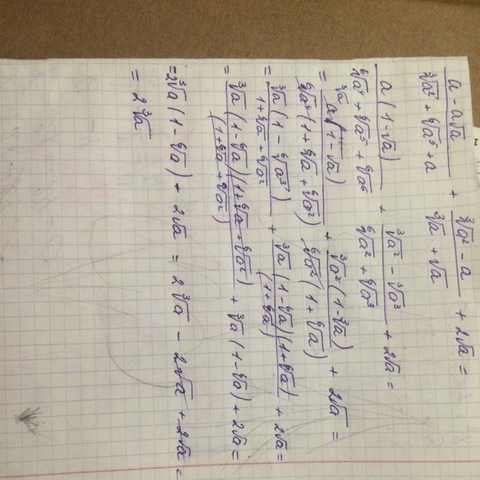 a - a√a / ∛a² + ⁶√a⁵ + a + ∛a² - a / ∛a + √a + 2√a =
a(1-√a) / ⁶√a⁴ + ⁶√a⁵ + ⁶√a⁶ + ∛a² - ∛a³ / ⁶√a² + ⁶√a³ + 2√a =
= ∛a a(1-√a) / ⁶√a⁴(1+⁶√a+⁶√a²) + ∛a²(1-∛a) / ⁶√a²(1+⁶√a) + 2√a =
= ∛a(1-⁶√a³) / 1+⁶√a+⁶√a² + ∛a(1-⁶√a)(1+⁶√a) / (1+⁶√a) + 2√a =
= ∛a(1-⁶√a)(1+⁶√a+⁶√a²) / (1+⁶√a+⁶√a²) + ∛a(1-⁶√a) + 2√a =
= 2∛a(1-⁶√a) + 2√a = 2∛a - 2√a + 2√a =
= 2∛a